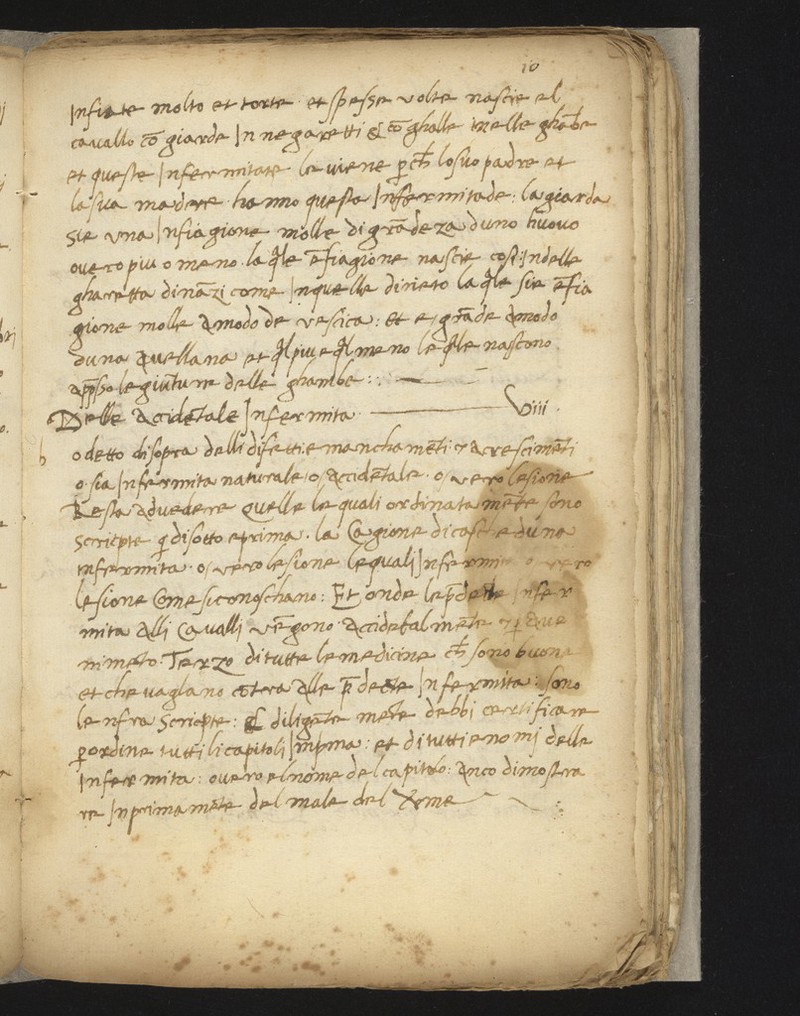 10
Infiate molto et torte et spesse volte nascie el
cavallo cō giarde In negaretti & cō ghalle nelle ghābe
et queste Infermitate le viene p̄ch̄ lo suo padre et
la sua madere hanno questa Infermitade : la giarda
sie una Infiagione molle di grādeza duno huovo
overo piu o meno la q̄le ēfiagione nascie cosi Indelle
gharetta dināzi come Inquelle dirieto la q̄le sie ēfia
gione molle a modo de vescica : et e grāde a modo
duna avellana et q̄l piu e q̄l meno le q̄le nascono
app̄sso le giūture delle ghambe : .
Delle Accidētale Infermita viii .
h o detto disopra delli difetti e manchamēti & acrescimēti
o sia Infermita naturale o accidētale o vero lesione
Resta a vedere quelle le quali ordinatamēte sono
scricpte q̄ disotto e prima la Cagione di cascheduna
infermita o vero lesione le quali Infermita o vero
lesione Come si conoschano : Et onde le p̄dette Infer
mita alli Cavalli vēgono accidētalmēte & p̄ ave
nimēto Terzo di tutte le medicine ch̄ sono buone
et che vaglano cōtera alle p̄dette Infermita : sono
le nfra scricpte : El diligēte mēte debbi certificare
p̄ ordine tutti li capitoli Inp̄ma : et di tutti e nomj delle
Infermita : overo el nome del capitolo : anco dimostra
re Inprimamēte del male del Verme